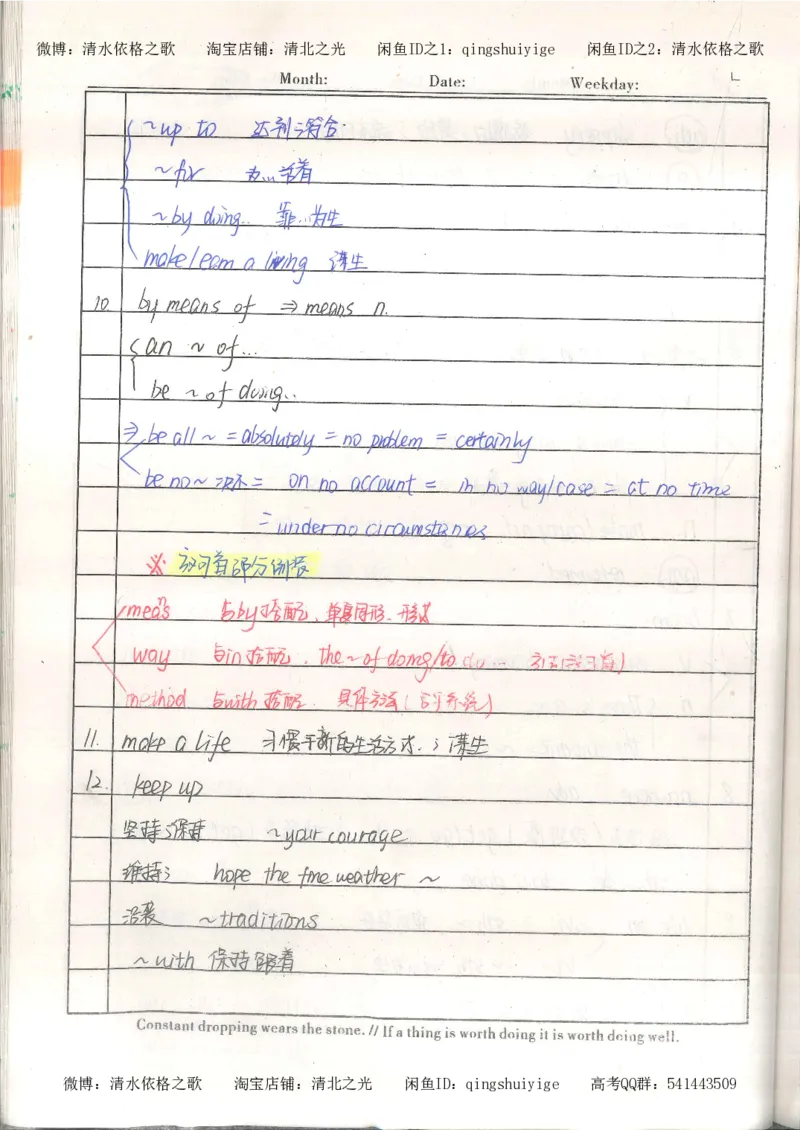 微博：清水依格之歌 淘宝店铺：清北之光 闲鱼ID之1：qingshuiyige 闲鱼ID之2：清水依格之歌
Month: Date: Weekday:
~up to 达到；符合
~for 为…活着
~by doing.. 靠…为生
make/earn a living 谋生
10. by means of ⇒ means n.
an ~ of...
be ~ of doing..
⇒ be all ~ = absolutely = no problem = certainly
be no ~ 决不 = on no account = in no way/case = at no time
= under no circumstances
※ 句首部分倒装
means 与by搭配，单复同形
way 与in搭配，the ~ of doing/to do
method 与with搭配，具体方法(
11. make a life 习惯于新的生活方式；谋生
12. keep up
坚持；保持 ~your courage
维持； hope the fine weather ~
沿袭 ~traditions
~with 保持
Constant dropping wears the stone. // If a thing is worth doing it is worth doing well.
微博：清水依格之歌 淘宝店铺：清北之光 闲鱼ID：qingshuiyige 高考QQ群：541443509